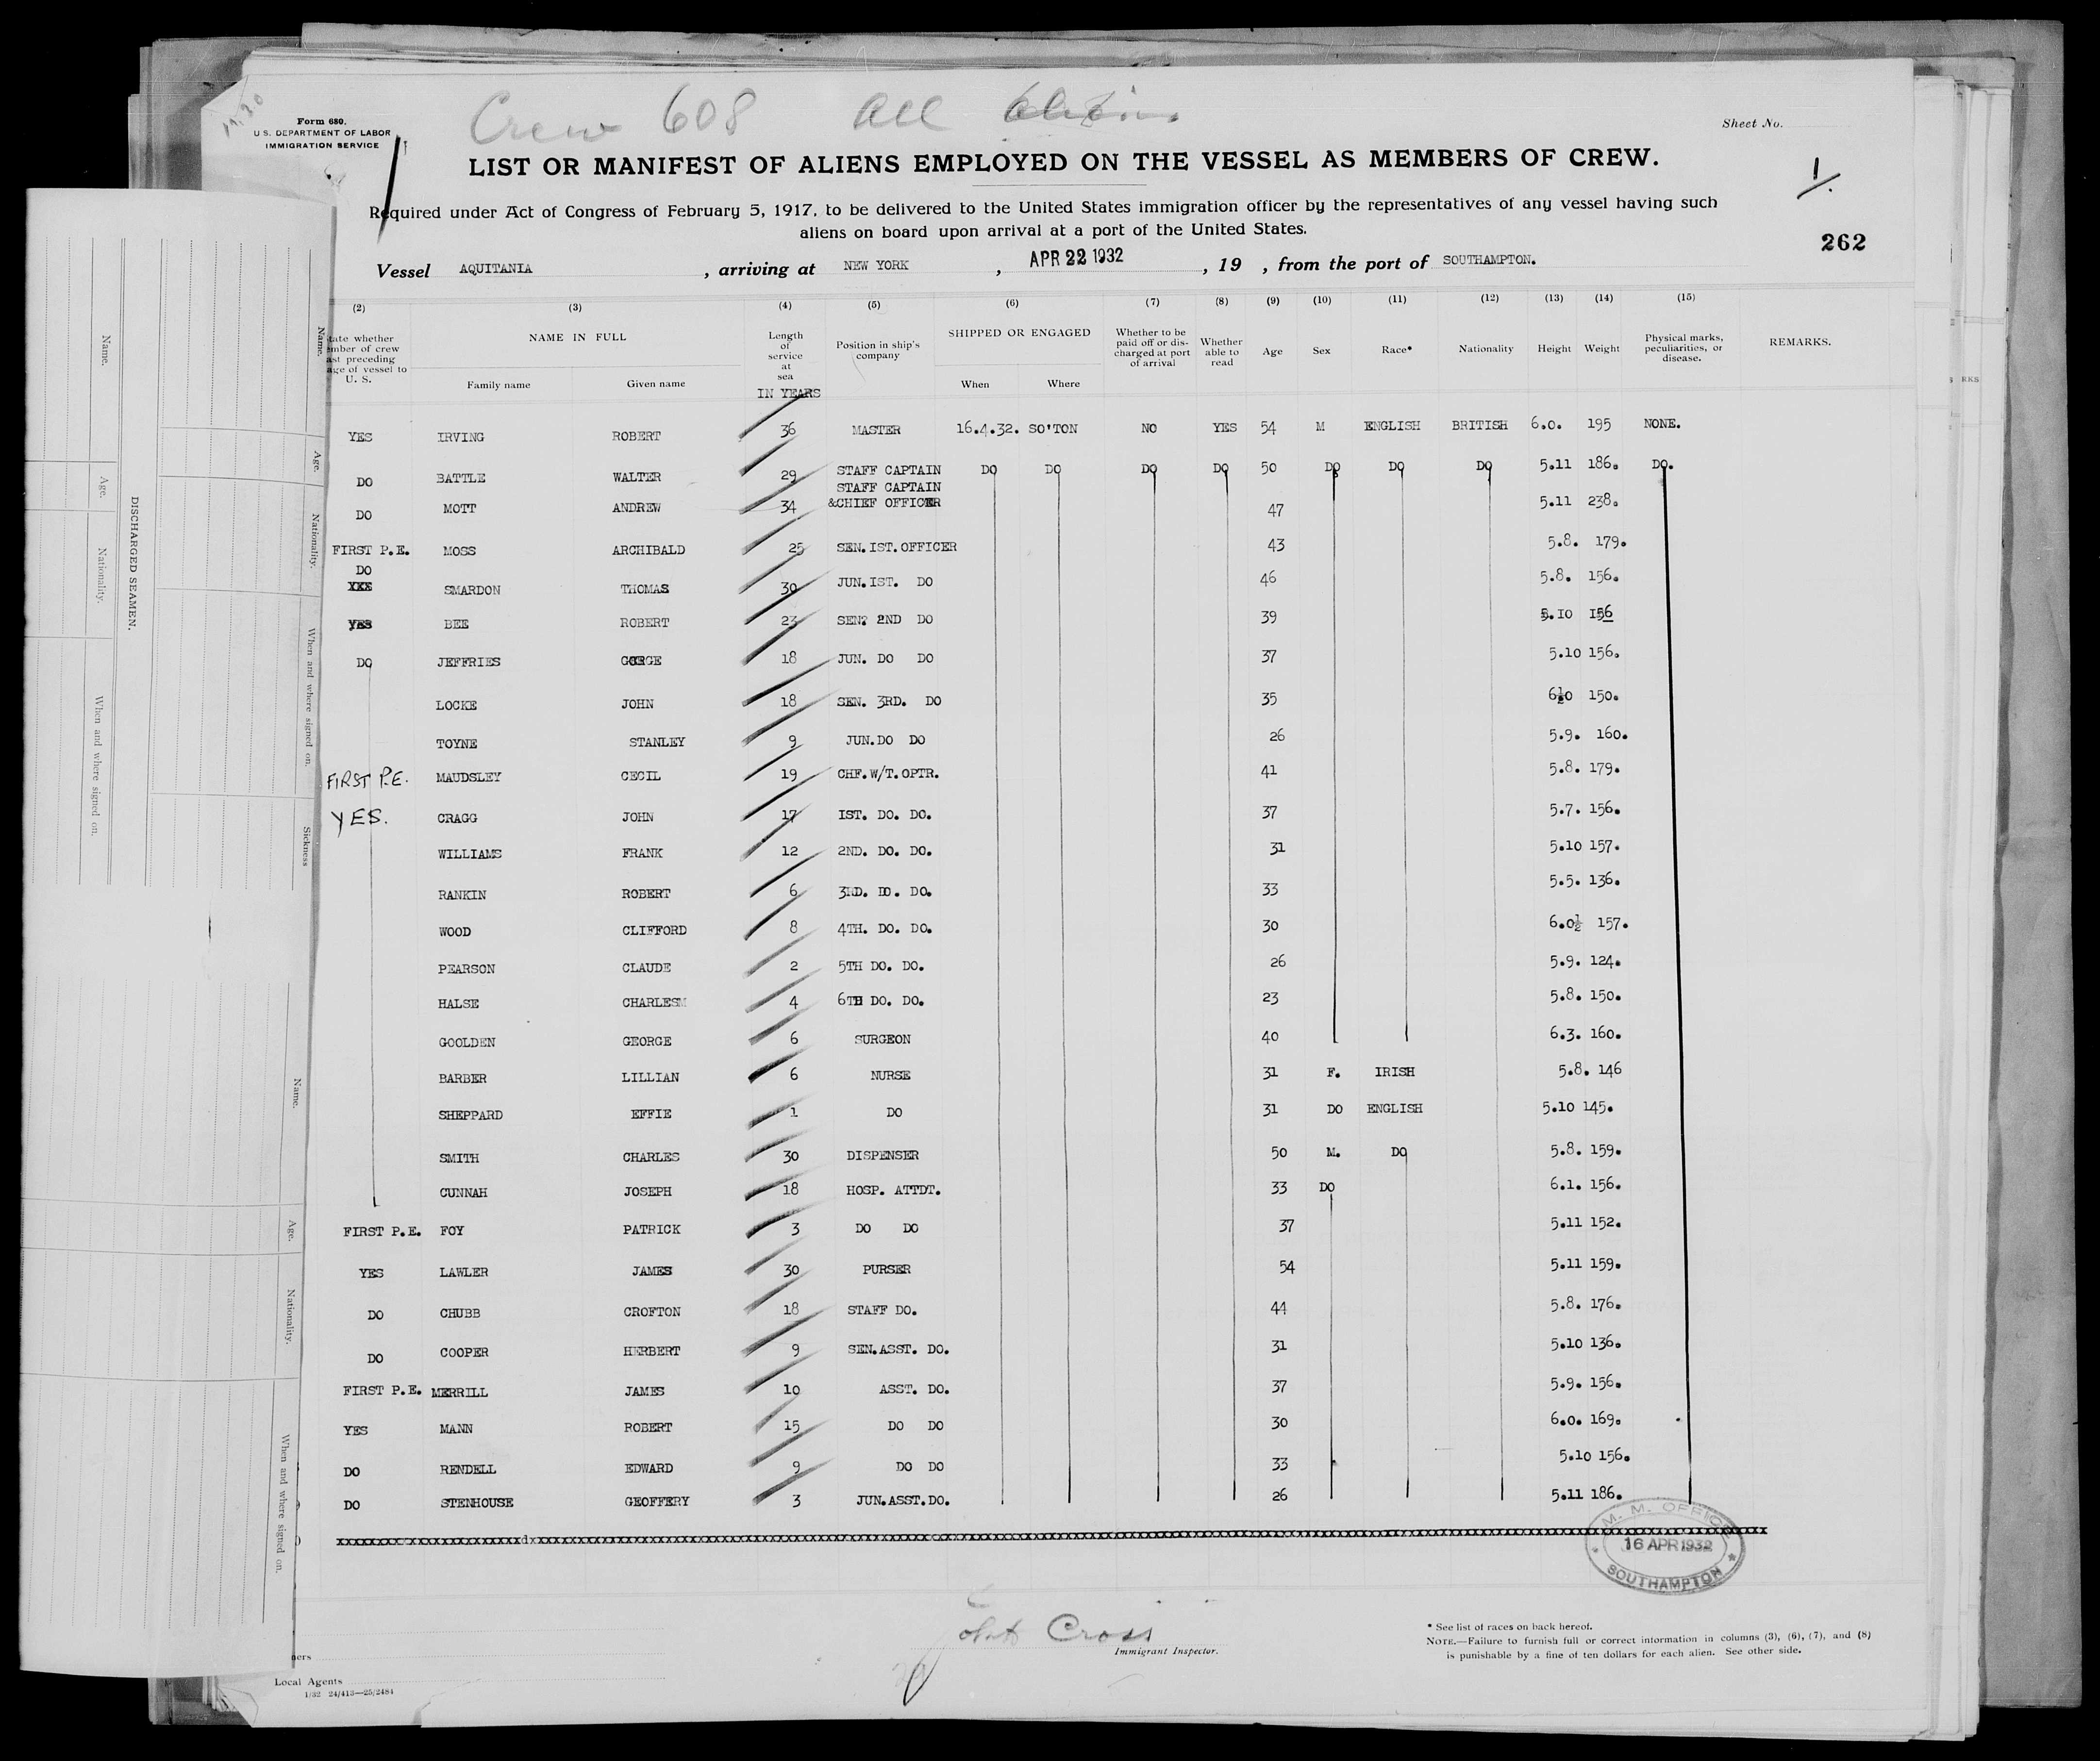 Crew 608 All
Form 680.
U. S. DEPARTMENT OF LABOR
IMMIGRATION SERVICE
Sheet No.
1/.
LIST OR MANIFEST OF ALIENS EMPLOYED ON THE VESSEL AS MEMBERS OF CREW.
Required under Act of Congress of February 5, 1917, to be delivered to the United States immigration officer by the representatives of any vessel having such
aliens on board upon arrival at a port of the United States.
262
Vessel AQUITANIA , arriving at NEW YORK , APR 22 1932 , 19 , from the port of SOUTHAMPTON.
(2) (3) (4) (5) (6) (7) (8) (9) (10) (11) (12) (13) (14) (15)
tate whether
mber of crew
ast preceding
age of vessel to
U. S.
NAME IN FULL
Family name Given name
Length
of
service
at
sea
IN YEARS
Position in ship's
company
SHIPPED OR ENGAGED
When Where
Whether to be
paid off or dis-
charged at port
of arrival
Whether
able to
read
Age Sex Race* Nationality Height Weight
Physical marks,
peculiarities, or
disease.
REMARKS.
YES IRVING ROBERT 36 MASTER 16.4.32. SO'TON NO YES 54 M ENGLISH BRITISH 6.0. 195 NONE.
DO BATTLE WALTER 29 STAFF CAPTAIN DO DO DO DO 50 DO DO DO 5.11 186. DO.
STAFF CAPTAIN
DO MOTT ANDREW 34 &CHIEF OFFICER 47 5.11 238.
FIRST P.E. MOSS ARCHIBALD 25 SEN.IST.OFFICER 43 5.8. 179.
DO
SMARDON THOMAS 30 JUN.IST. DO 46 5.8. 156.
YES BEE ROBERT 23 SEN? 2ND DO 39 5.10 156
DO JEFFRIES GORGE 18 JUN. DO DO 37 5.10 156.
LOCKE JOHN 18 SEN. 3RD. DO 35 6½0 150.
TOYNE STANLEY 9 JUN.DO DO 26 5.9. 160.
FIRST P.E. MAUDSLEY CECIL 19 CHF.W/T.OPTR. 41 5.8. 179.
YES. CRAGG JOHN 17 IST. DO. DO. 37 5.7. 156.
WILLIAMS FRANK 12 2ND. DO. DO. 31 5.10 157.
RANKIN ROBERT 6 3RD. DO. DO. 33 5.5. 136.
WOOD CLIFFORD 8 4TH. DO. DO. 30 6.0½ 157.
PEARSON CLAUDE 2 5TH DO. DO. 26 5.9. 124.
HALSE CHARLESM 4 6TH DO. DO. 23 5.8. 150.
GOOLDEN GEORGE 6 SURGEON 40 6.3. 160.
BARBER LILLIAN 6 NURSE 31 F. IRISH 5.8. 146
SHEPPARD EFFIE 1 DO 31 DO ENGLISH 5.10 145.
SMITH CHARLES 30 DISPENSER 50 M. DO 5.8. 159.
CUNNAH JOSEPH 18 HOSP. ATTDT. 33 DO 6.1. 156.
FIRST P.E. FOY PATRICK 3 DO DO 37 5.11 152.
YES LAWLER JAMES 30 PURSER 54 5.11 159.
DO CHUBB CROFTON 18 STAFF DO. 44 5.8. 176.
DO COOPER HERBERT 9 SEN.ASST. DO. 31 5.10 136.
FIRST P.E. MERRILL JAMES 10 ASST. DO. 37 5.9. 156.
YES MANN ROBERT 15 DO DO 30 6.0. 169.
DO RENDELL EDWARD 9 DO DO 33 5.10 156.
DO STENHOUSE GEOFFERY 3 JUN.ASST.DO. 26 5.11 186.
M. M. OFFICE
16 APR 1932
SOUTHAMPTON
Cross
Immigrant Inspector.
* See list of races on back hereof.
NOTE.—Failure to furnish full or correct information in columns (3), (6), (7), and (8)
is punishable by a fine of ten dollars for each alien. See other side.
ners
Local Agents
1/32 24/413—25/2484
DISCHARGED SEAMEN.
Name.
Age.
Nationality.
When and where signed on.
Name.
Age.
Nationality.
When and where signed on.
Sickness
Name.
Age.
Nationality.
When and where signed on.
RKS